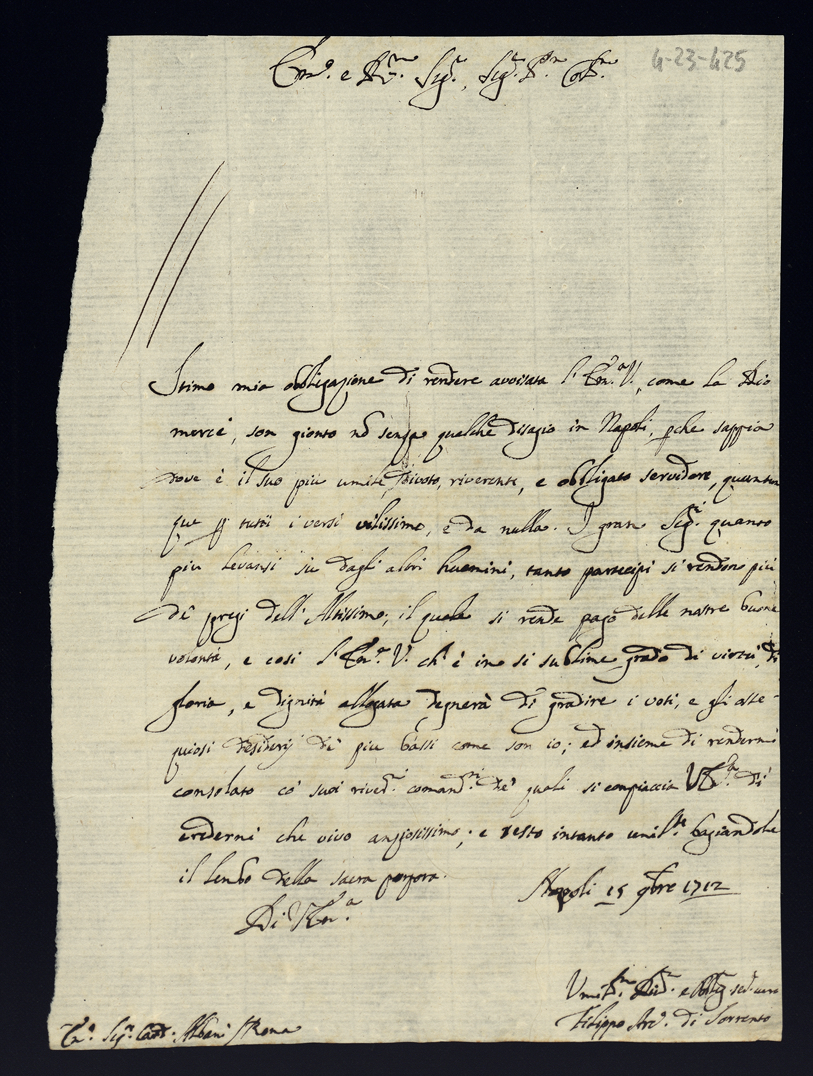 4-23-425
Em.º e R.mo Sig.r, Sig.r P.ne Col.mo
Stimo mia obbligazione di rendere avvisata l'Em.a V., come la Dio
mercè, son gionto nõ senza qualche disagio in Napoli, pche sappia
dove è il suo più umile, divoto, riverente, e obbligato servidore,
que p tutti i versi vilissimo, e da nulla. I gran Sig.ri quanto
più levansi sù dagli altri huomini, tanto partecipi si rendon più
de' pregi dell'Altissimo; il quale si rende pago delle nostre buone
volontà, e così l'Em.a V. ch'è in si sublime grado di virtù, di
gloria, e dignità allogata, degnerà di gradire i voti, e gli osse-
quiosi desiderj de' più bassi come son io; ed insieme di rendermi
consolato co' suoi river.i comand.ti de' quali si compiaccia V.E. di
crederni che vivo ansiosissimo; e resto intanto umil.te bagiandole
il lembo della sacra porpora.
Napoli 15 9bre 1712
Di V. Em.a
Umil.mo Div.mo e Obblig. ser. vero
Filippo Arc. di Sorrento
Em.o Sig.r Card. Albani Roma